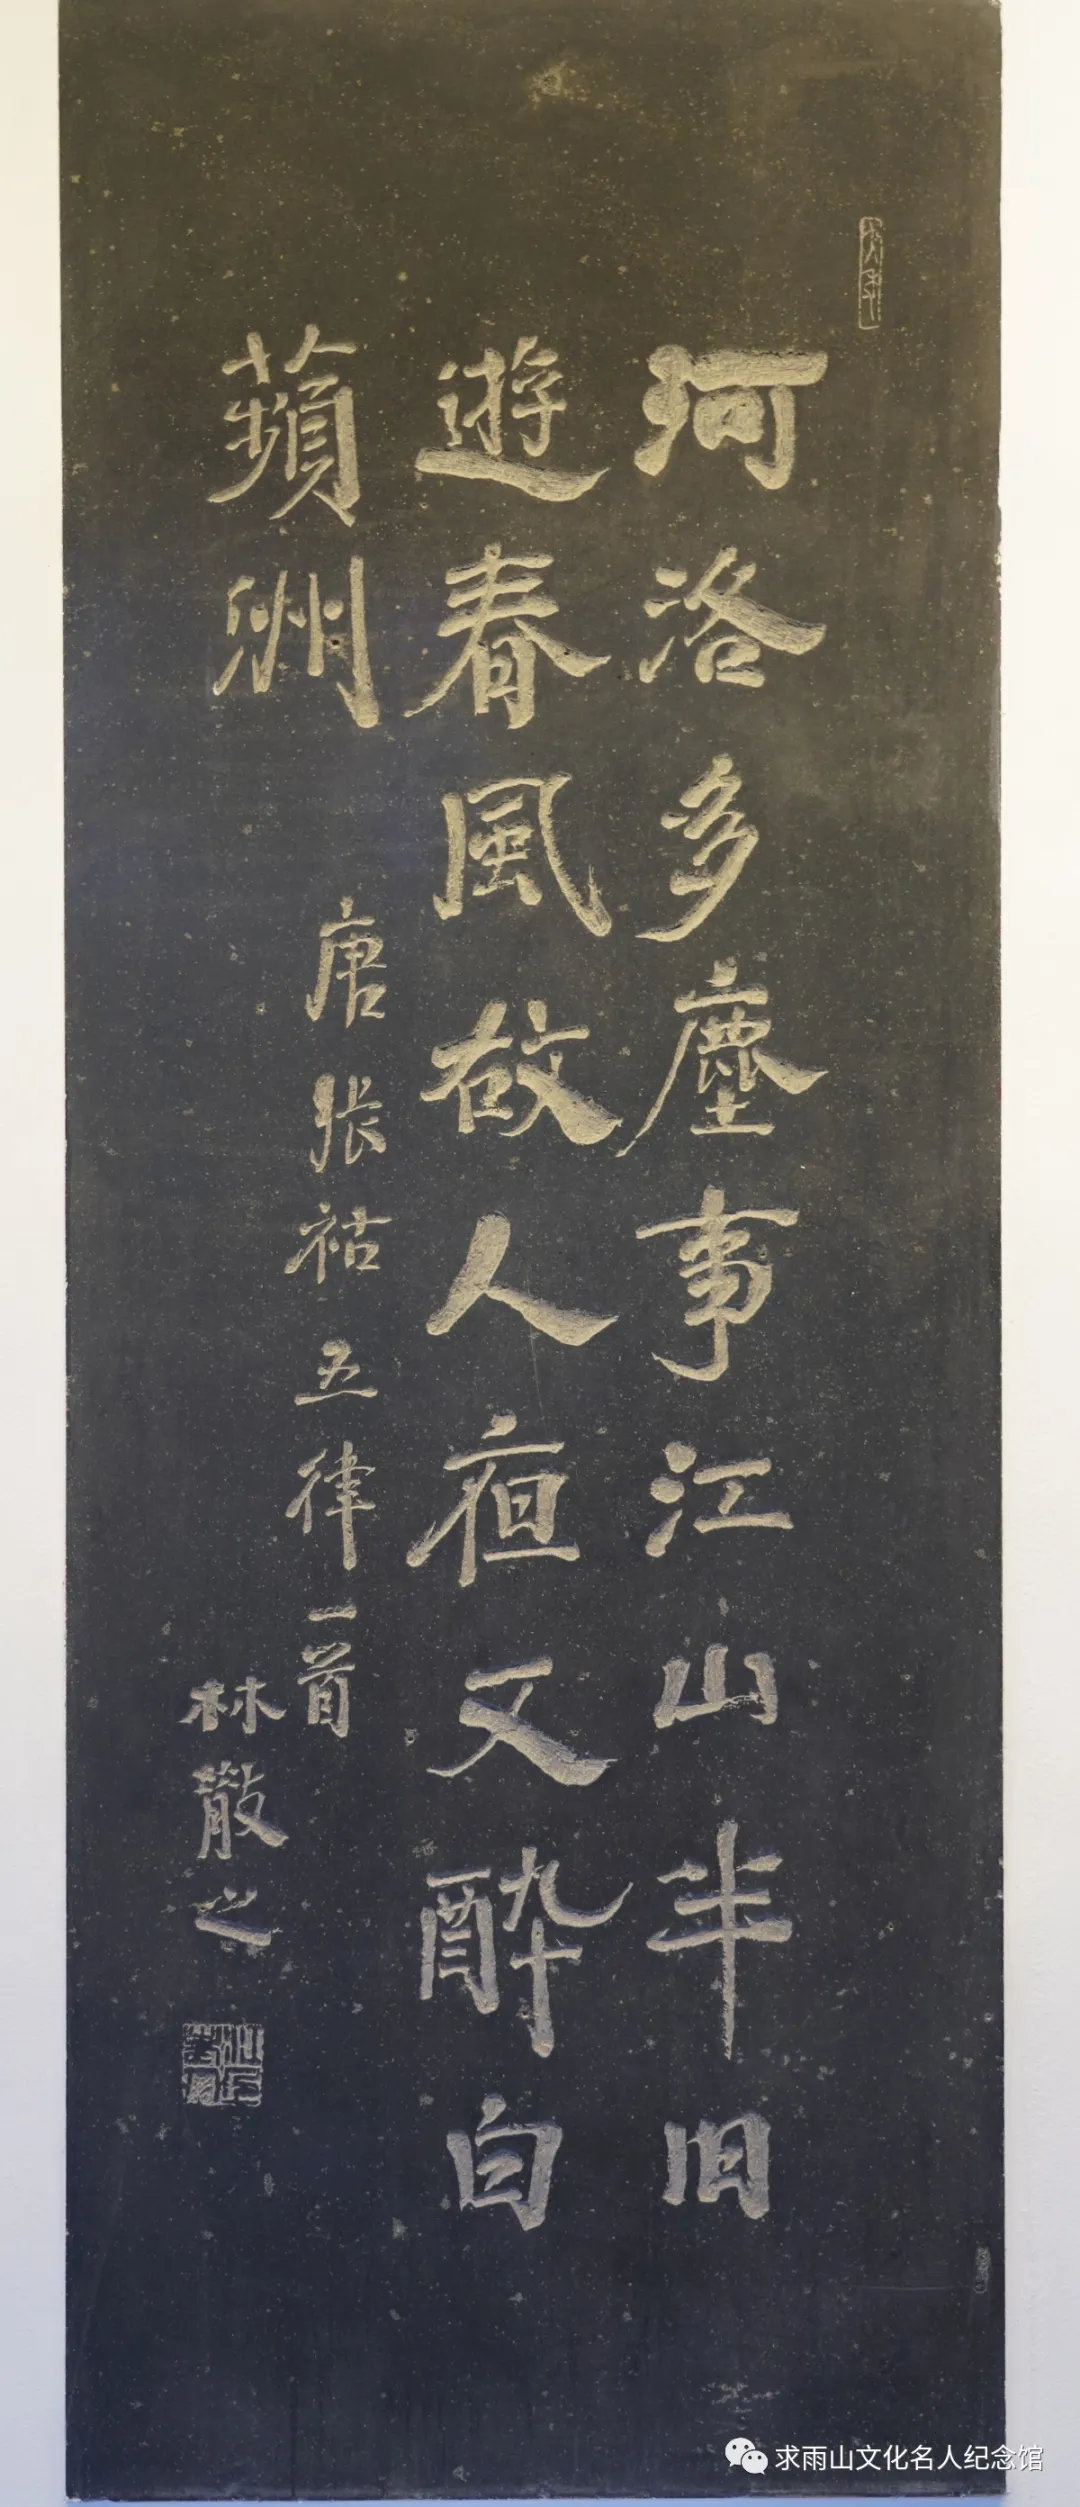 河洛多塵事江山半旧
遊春風故人夜又醉白
蘋洲
唐張祜五律一首
林散之
求雨山文化名人纪念馆